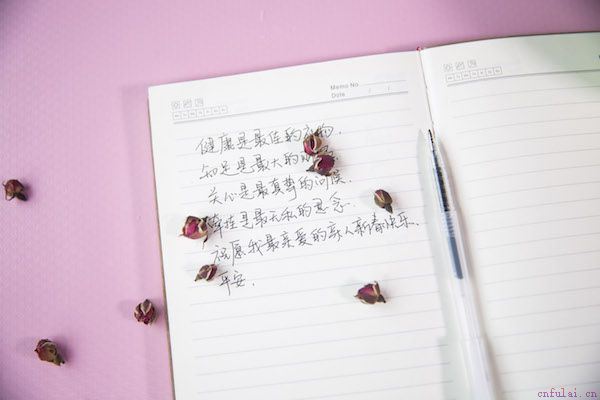 Memo No.
Date / /
健康是最佳的物,
知足是最大的
关心是最真挚的问候,
牵挂是最无私的思念.
祝愿我最亲爱的亲人新春快乐,
平安.
cnfulai.cn